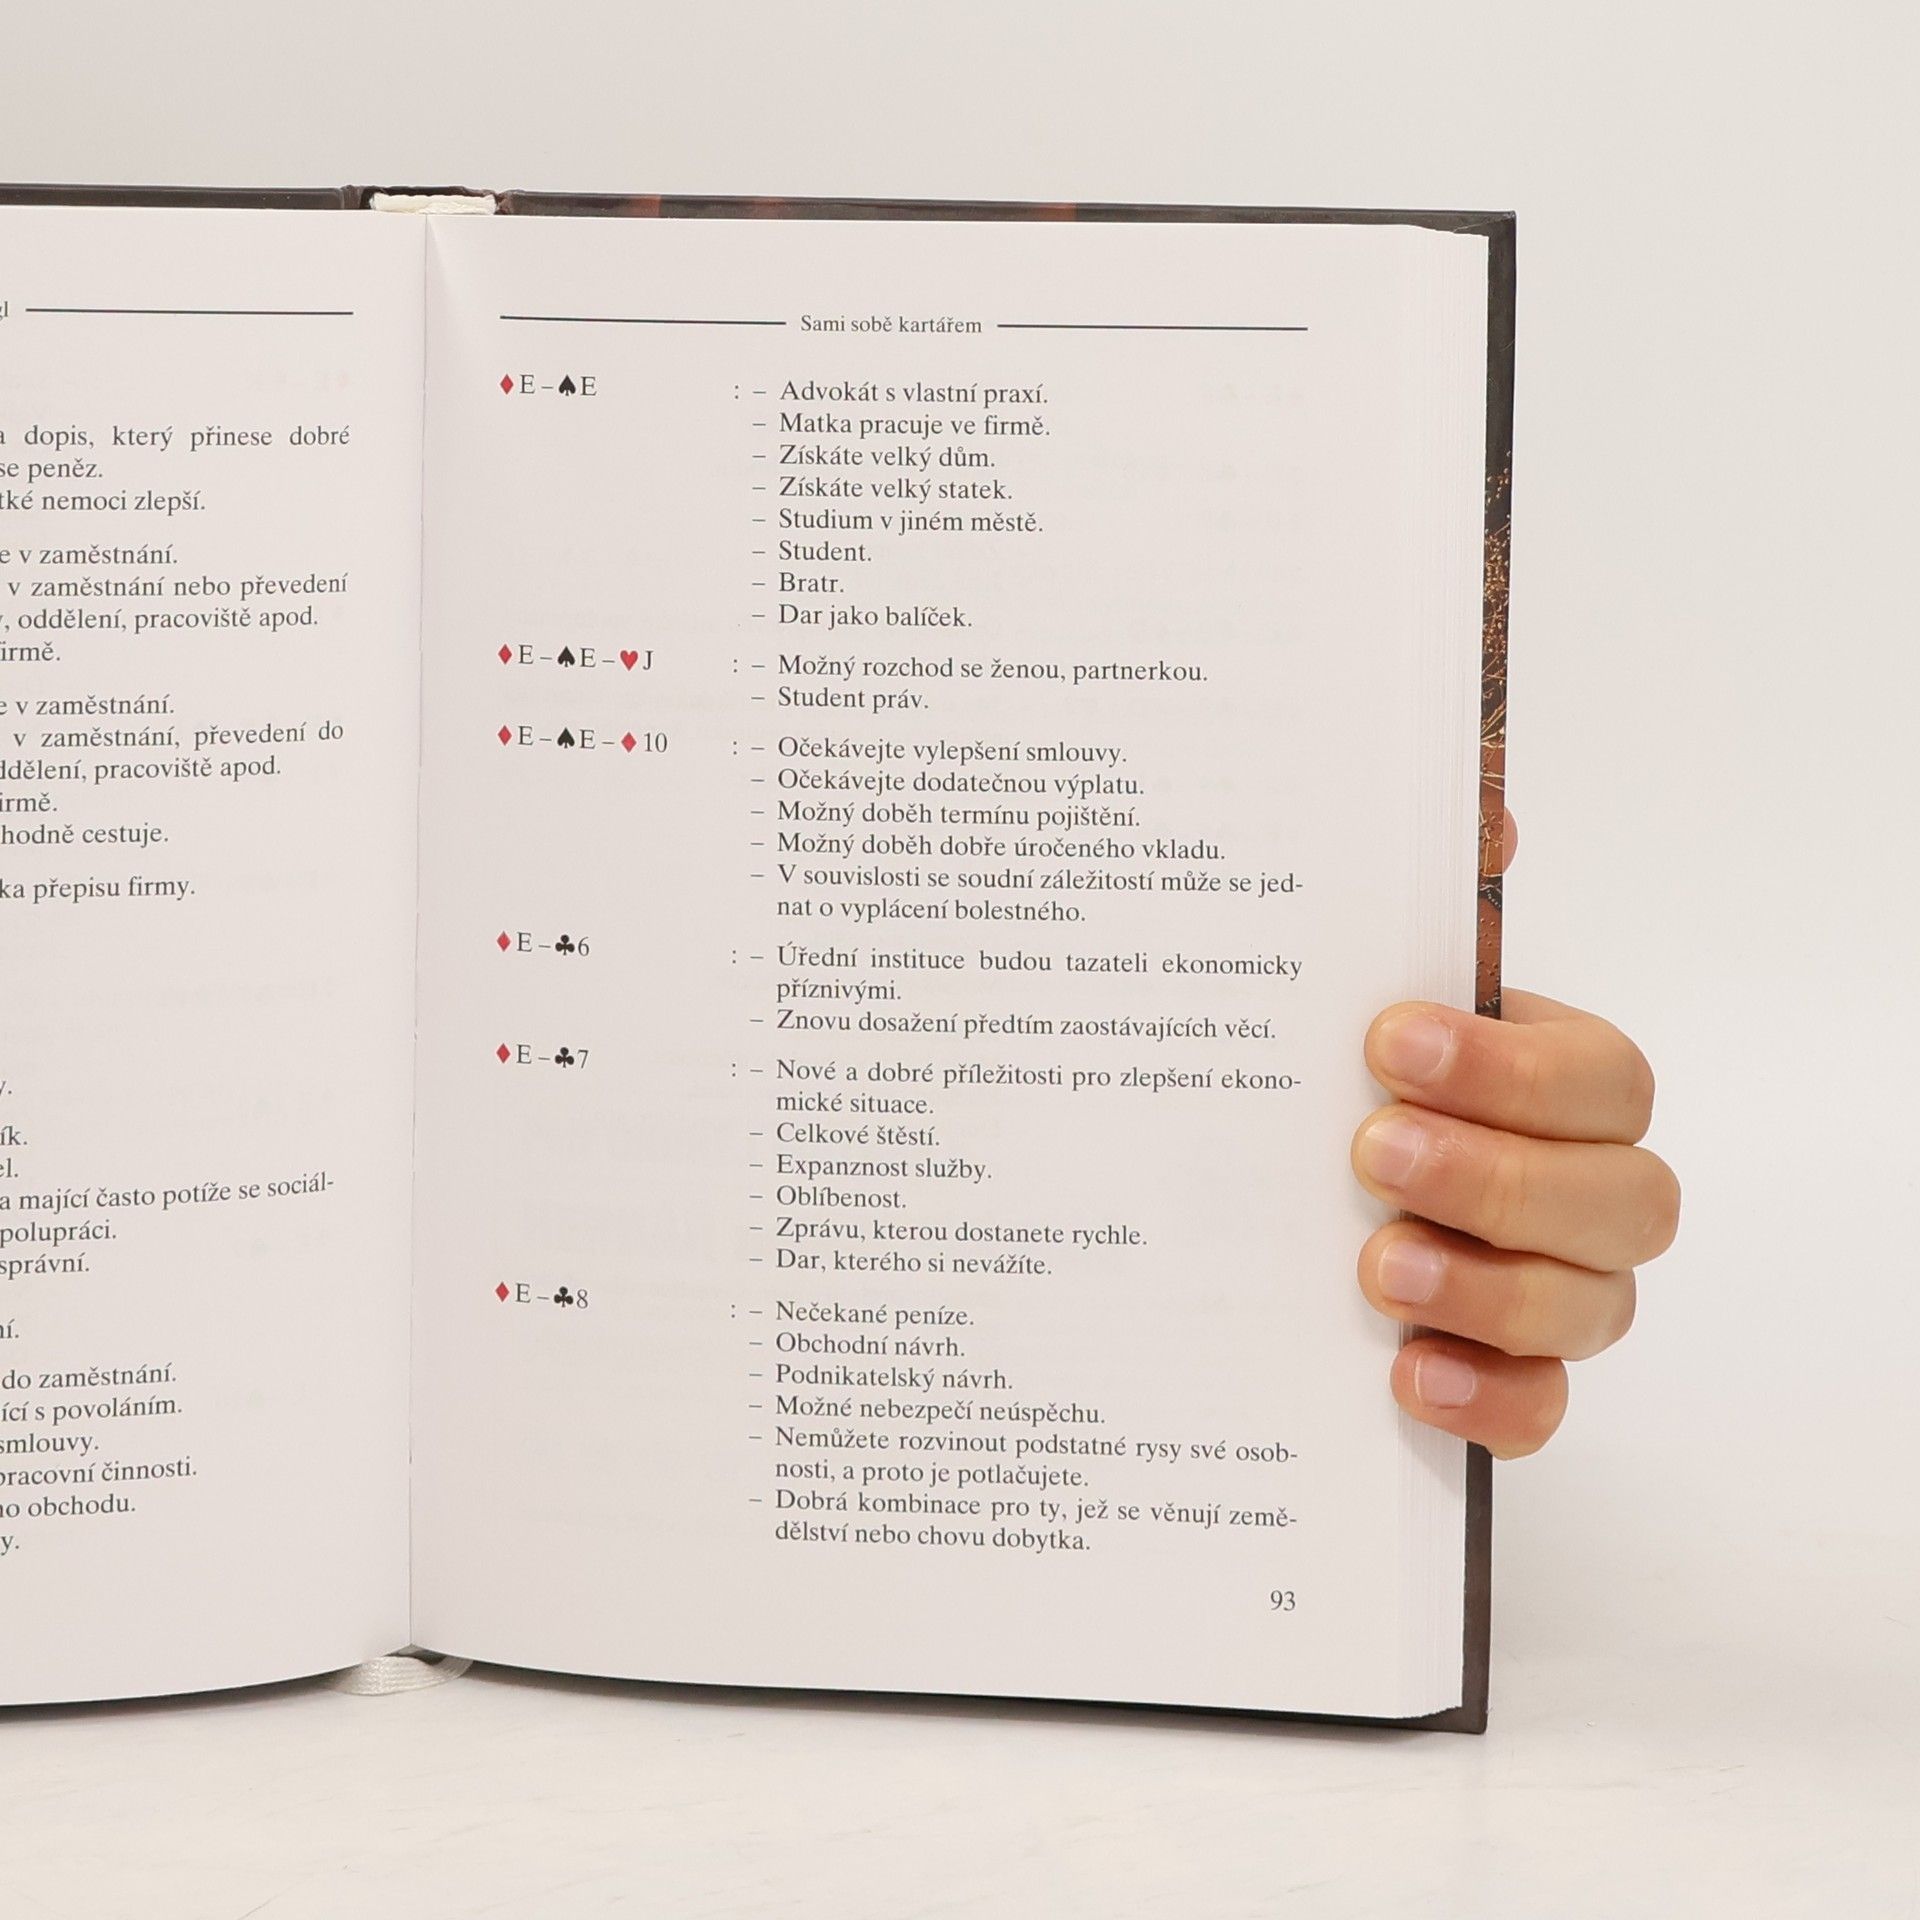 a dopis, který přinese dobré
se peněz.
nemoci zlepší.
v zaměstnání.
v zaměstnání nebo převedení
oddělení, pracoviště apod.
v zaměstnání.
v zaměstnání, převedení do
pracoviště apod.
cestuje.
přepisu firmy.
a mající často potíže se sociál-
do zaměstnání.
s povoláním.
smlouvy.
pracovní činnosti.
obchodu.
Sami sobě kartářem
♦E – ♠E : – Advokát s vlastní praxí.
– Matka pracuje ve firmě.
– Získáte velký dům.
– Získáte velký statek.
– Studium v jiném městě.
– Student.
– Bratr.
– Dar jako balíček.
♦E – ♠E – ♥J : – Možný rozchod se ženou, partnerkou.
– Student práv.
♦E – ♠E – ♦10 : – Očekávejte vylepšení smlouvy.
– Očekávejte dodatečnou výplatu.
– Možný doběh termínu pojištění.
– Možný doběh dobře úročeného vkladu.
– V souvislosti se soudní záležitostí může se jed-
nat o vyplácení bolestného.
♦E – ♣6 : – Úřední instituce budou tazateli ekonomicky
příznivými.
– Znovu dosažení předtím zaostávajících věcí.
♦E – ♣7 : – Nové a dobré příležitosti pro zlepšení ekono-
mické situace.
– Celkové štěstí.
– Expanznost služby.
– Oblíbenost.
– Zprávu, kterou dostanete rychle.
– Dar, kterého si nevážíte.
♦E – ♣8 : – Nečekané peníze.
– Obchodní návrh.
– Podnikatelský návrh.
– Možné nebezpečí neúspěchu.
– Nemůžete rozvinout podstatné rysy své osob-
nosti, a proto je potlačujete.
– Dobrá kombinace pro ty, jež se věnují země-
dělství nebo chovu dobytka.
93